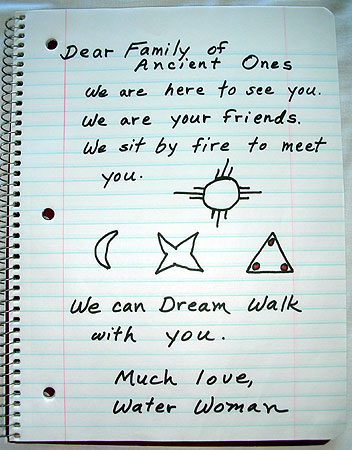 Dear Family of
Ancient Ones
We are here to see you.
We are your friends.
We sit by fire to meet
you.
We can Dream Walk
with you.
Much love,
Water Woman